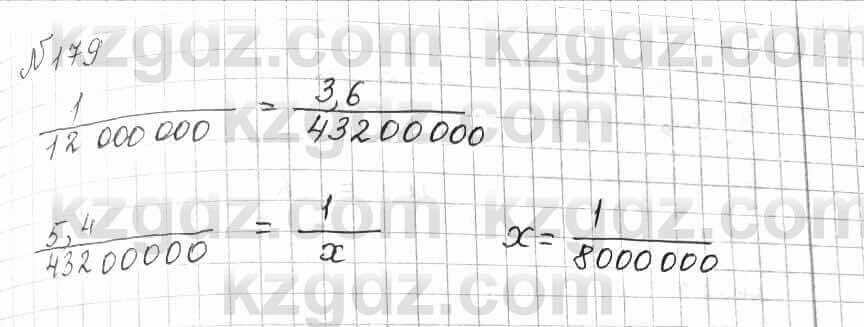 kzgdz.com kzgdz.com
№179
1/12 000 000 = 3,6/43200000
kzgdz.com kzgdz.com
kzgdz.com kzgdz.com
5,4/43200000 = 1/x x = 1/8000000
kzgdz.com kzgdz.com